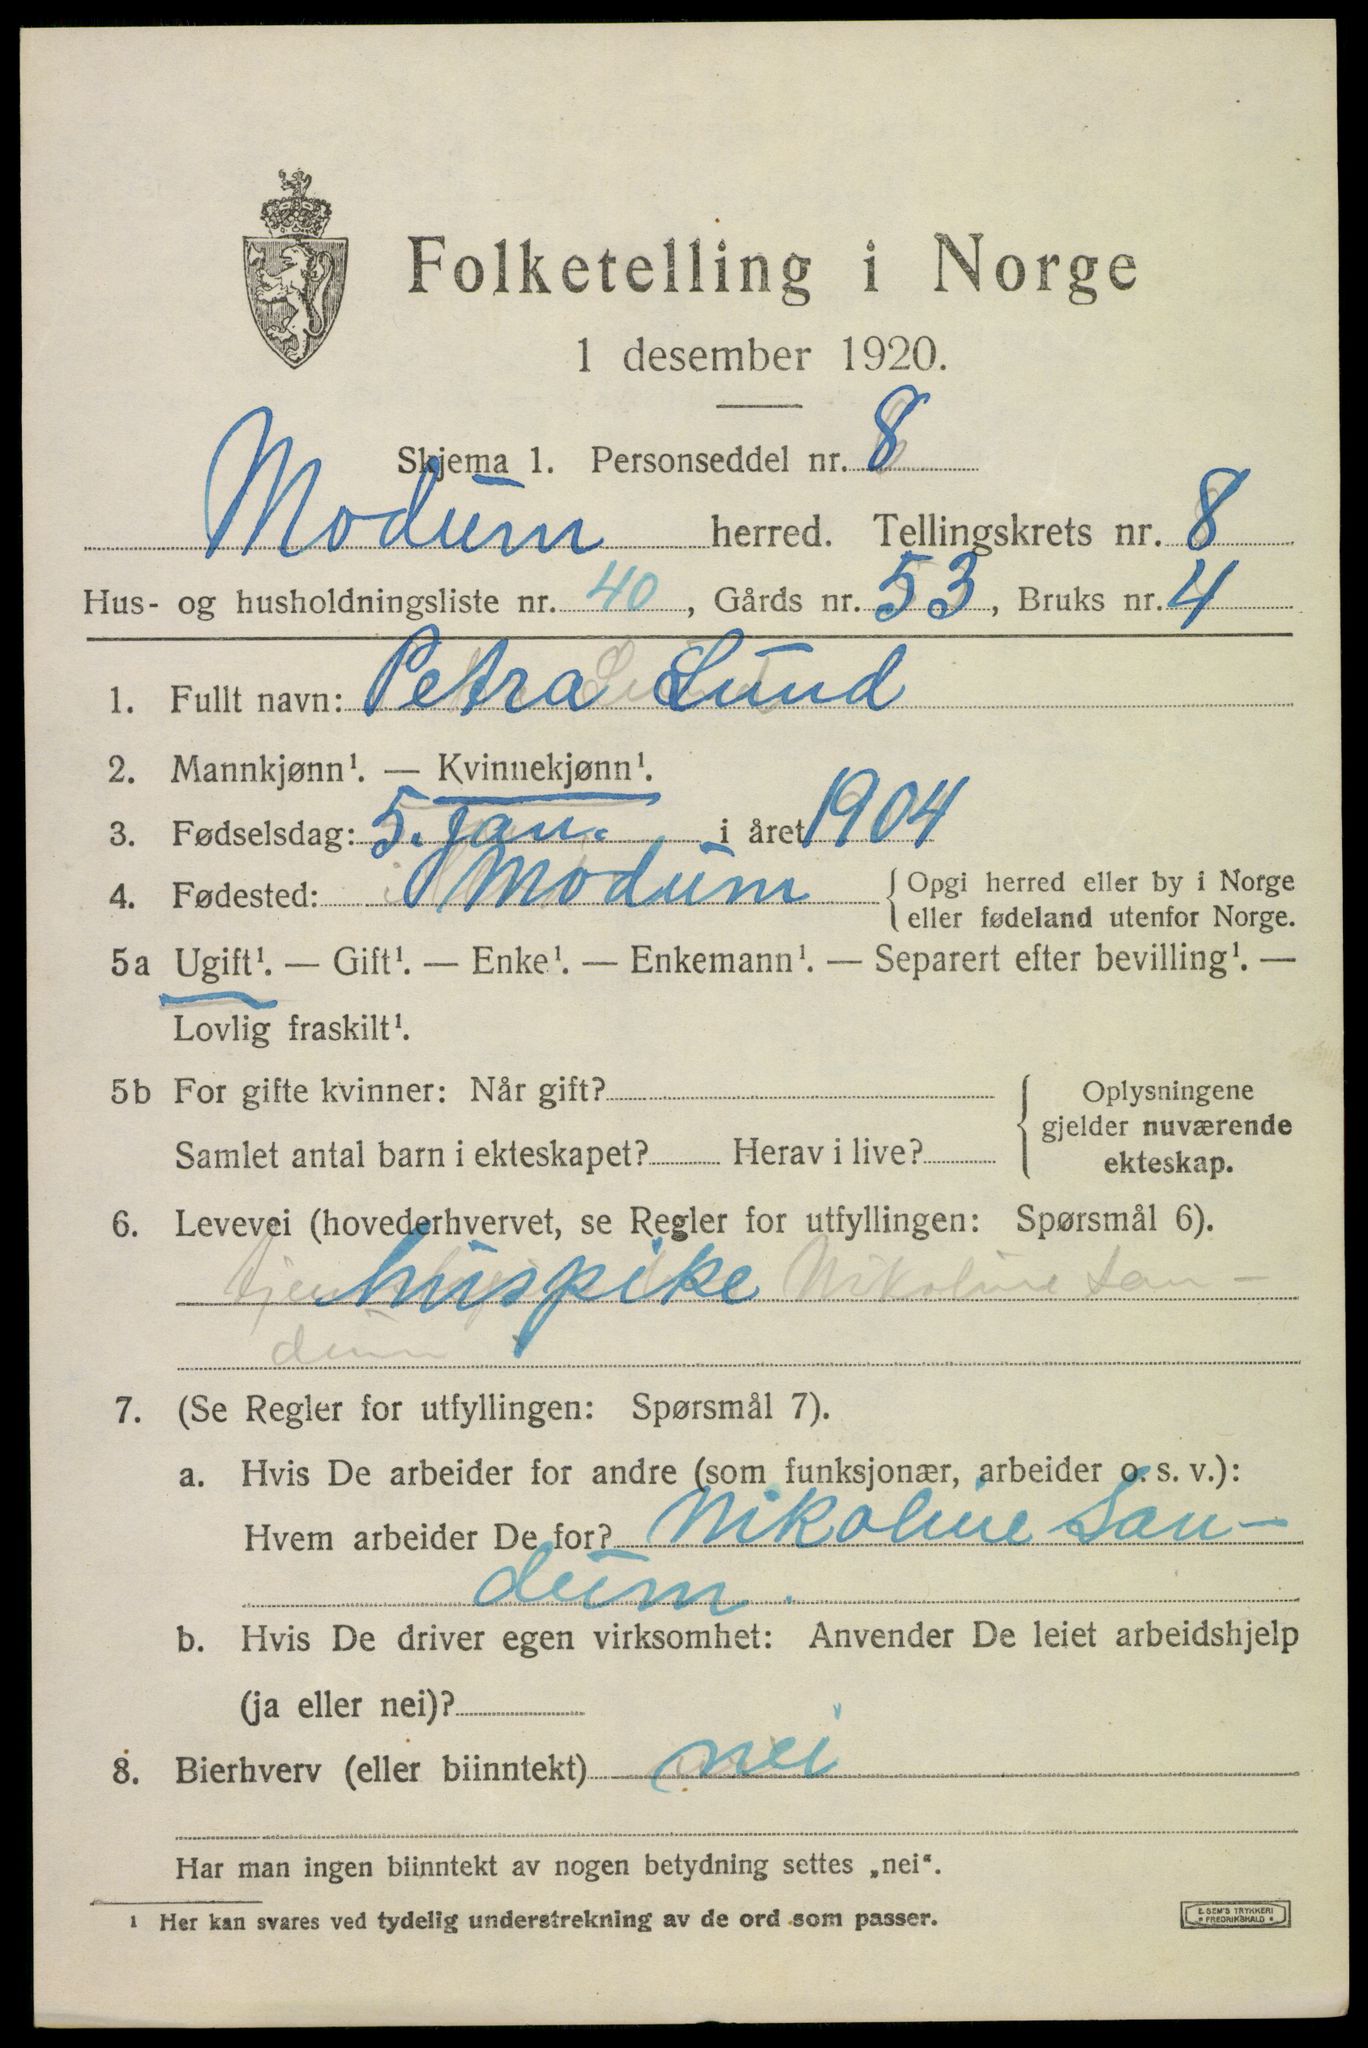 Folketelling i Norge
1 desember 1920.
Skjema 1. Personseddel nr. 8
Modum herred. Tellingskrets nr. 8
Hus- og husholdningsliste nr. 40, Gårds nr. 53, Bruks nr. 4
1. Fullt navn: Petra Lund
2. Mannkjønn¹. — Kvinnekjønn¹.
3. Fødselsdag: 5. jan. i året 1904
4. Fødested: Modum { Opgi herred eller by i Norge
eller fødeland utenfor Norge.
5a Ugift¹. — Gift¹. — Enke¹. — Enkemann¹. — Separert efter bevilling¹. —
Lovlig fraskilt¹.
5b For gifte kvinner: Når gift?
Samlet antal barn i ekteskapet? Herav i live?
Oplysningene
gjelder nuværende
ekteskap.
6. Levevei (hovederhvervet, se Regler for utfyllingen: Spørsmål 6).
huspike Nikoline San-
dum
7. (Se Regler for utfyllingen: Spørsmål 7).
a. Hvis De arbeider for andre (som funksjonær, arbeider o. s. v.):
Hvem arbeider De for? Nikoline San-
dum.
b. Hvis De driver egen virksomhet: Anvender De leiet arbeidshjelp
(ja eller nei)?
8. Bierhverv (eller biinntekt) nei
Har man ingen biinntekt av nogen betydning settes „nei“.
¹ Her kan svares ved tydelig understrekning av de ord som passer.
E. SEM'S TRYKKERI
FREDRIKSHALD